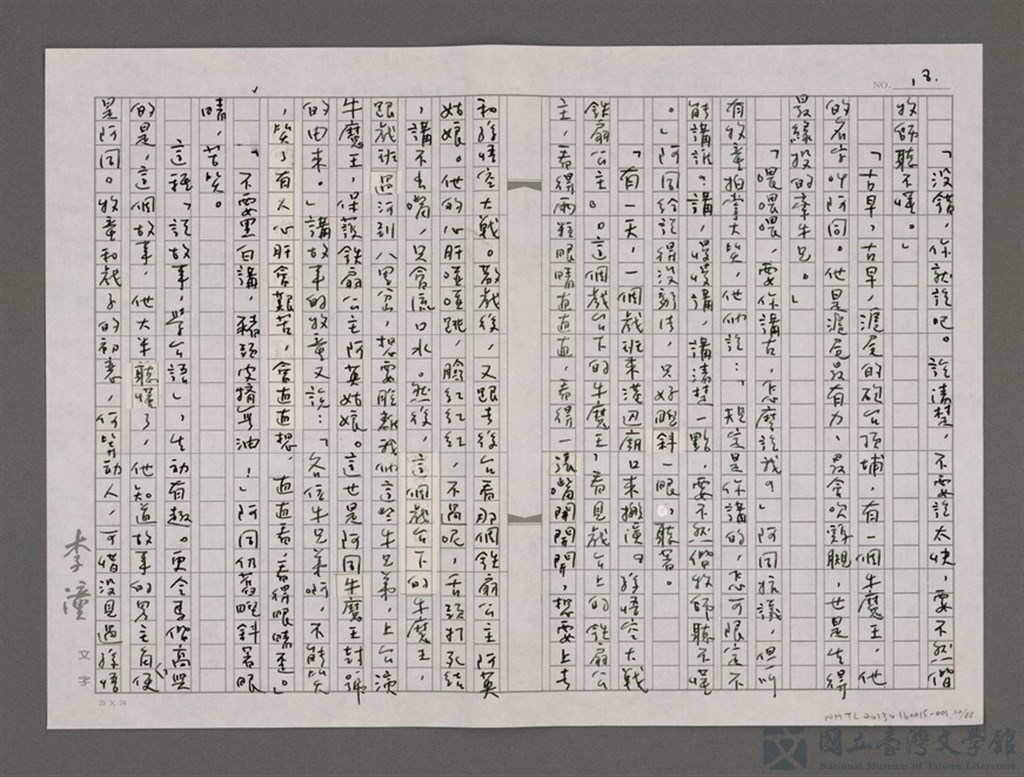 NO. 18.
「沒錯,你就說吧。說清楚,不要說太快,要不然偕
牧師聽不懂。」
「古早,古早,滬尾的砲台頂埔,有一個牛魔王,他
的名字叫阿同。他是滬尾最有力、最會吹螺,也是生得
最緣投的牽牛兄。」
「喂喂喂,要你講古,怎麼說我?」阿同抗議,但一叫
有牧童拍掌大笑,他們說:「規定是你講的,怎可限定不
能講誰?講,慢慢講,講清楚一點,要不然偕牧師聽不懂
。」阿同給說得沒辦法,只好睨斜一眼,聽著。
「有一天,一個戲班來滬辺廟口來搬演。孫悟空大戰
鐵扇公主。這個戲台下的牛魔王,看見戲台上的鐵扇公
主,看得兩粒眼睛直直直,看得一張嘴開開開,想要上去
和孫悟空大戰。散戲後,又跟去後台看那個鐵扇公主阿英
姑娘。他的心肝噗噗跳,臉紅紅紅,不過呢,舌頭打死結
,講不出嘴,只會流口水。然後,這個戲台下的牛魔王,
跟戲班過河到八里坌,想要招我們這些牛兄弟,上台演
牛魔王,保護鐵扇公主阿英姑娘。這也是阿同牛魔王封號
的由來。」講故事的牧童又說:「各位牛兄弟啊,不能笑
,笑了有人心肝會艱苦,會直直想、直直看,看得眼睛歪。」
「不要黑白講,豬頭皮搾無油!」阿同仍舊睨斜著眼
睛,苦笑。
這種「說故事,學台語」,生動有趣。更令馬偕高興
的是,這個故事,他大半聽懂了,他知道故事的男主角便
是阿同。牧童和戲子的初戀,何等動人,可惜沒見過孫悟
李潼
文字
25 × 24
NMTL 20130160015-001
國立臺灣文學館
National Museum of Taiwan Literature